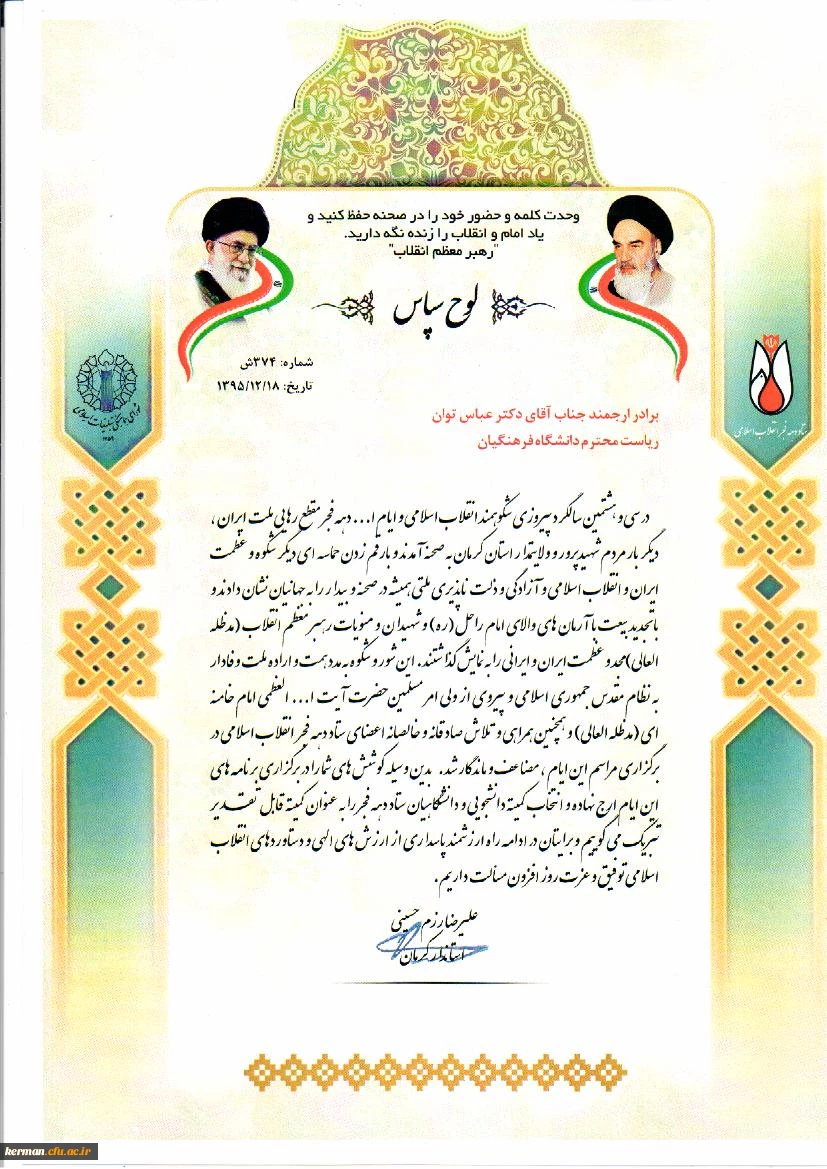 وحدت کلمه و حضور خود را در صحنه حفظ کنید و
یاد امام و انقلاب را زنده نگه دارید.
"رهبر معظم انقلاب"
لوح سپاس
شماره: ۳۷۴ش
تاریخ: ۱۳۹۵/۱۲/۱۸
شورای هماهنگی تبلیغات اسلامی
۱۳۵۹
ستاد دهه فجر انقلاب اسلامی
برادر ارجمند جناب آقای دکتر عباس توان
ریاست محترم دانشگاه فرهنگیان
در سی و هشتمین سالگرد پیروزی شکوهمند انقلاب اسلامی و ایام ا... دهه فجر مقطع رهایی ملت ایران ،
دیگر بار مردم شهید پرور و ولایتمدار استان کرمان به صحنه آمدند و با رقم زدن حماسه ای دیگر شکوه و عظمت
ایران و انقلاب اسلامی و آزادگی و ذلت ناپذیری ملتی همیشه در صحنه و بیدار را به جهانیان نشان دادند و
با تجدید بیعت با آرمان های والای امام راحل (ره) و شهیدان و منویات رهبر معظم انقلاب (مدظله
العالی) مجد و عظمت ایران و ایرانی را به نمایش گذاشتند. این شور و شکوه به مدد همت و اراده ملت وفادار
به نظام مقدس جمهوری اسلامی و پیروی از ولی امر مسلمین حضرت آیت ا... العظمی امام خامنه
ای (مدظله العالی) و همچنین همراهی و تلاش صادقانه و خالصانه اعضای ستاد دهه فجر انقلاب اسلامی در
برگزاری مراسم این ایام ، مضاعف و ماندگار شد. بدین وسیله کوشش های شما را در برگزاری برنامه های
این ایام ارج نهاده و انتخاب کمیته دانشجویی و دانشگاهیان ستاد دهه فجر را به عنوان کمیته قابل تقدیر
تبریک می گوییم و برایتان در ادامه راه ارزشمند پاسداری از ارزش های الهی و دستاوردهای انقلاب
اسلامی توفیق و عزت روز افزون مسألت داریم.
علیرضا رزم حسینی
استاندار کرمان
kerman.cfu.ac.ir